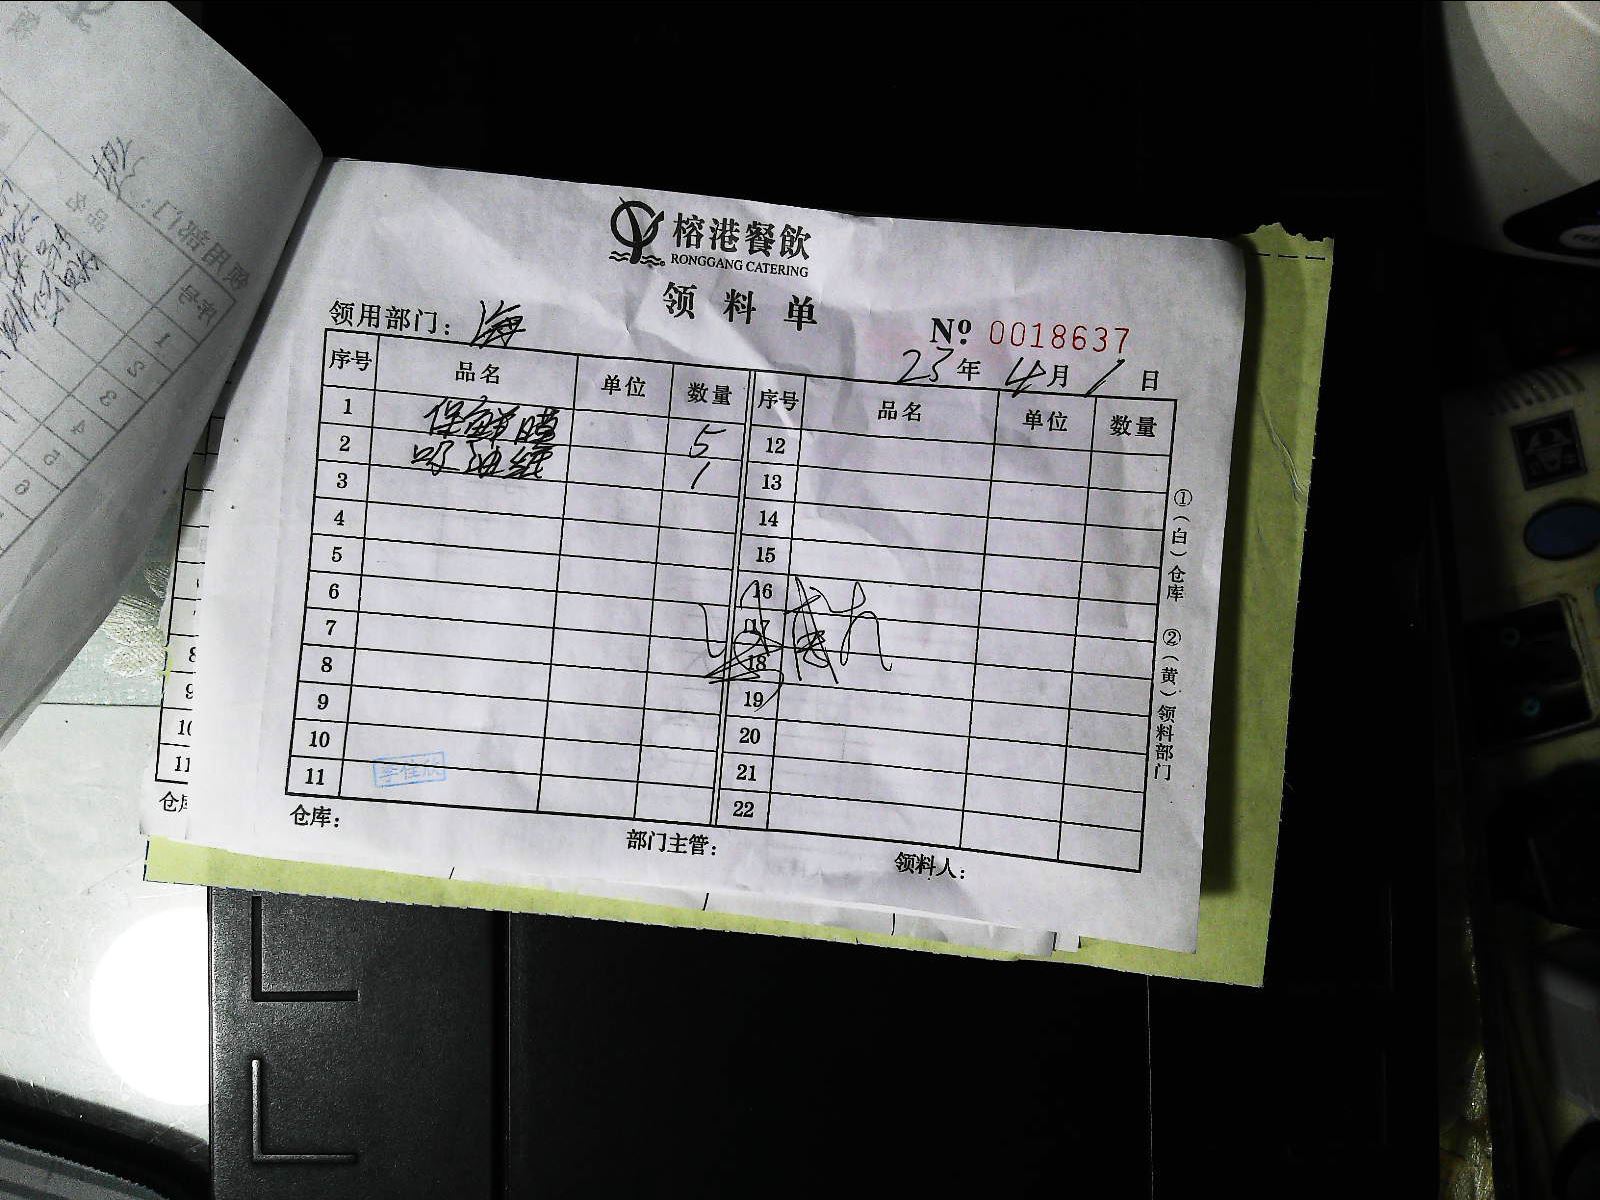 榕港餐飲
RONGGANG CATERING
领料单
领用部门： 海
№ 0018637
23年4月1日
序号 品名 单位 数量 序号 品名 单位 数量
1 保鲜膜 5 12
2 吸油纸 1 13
3 14
4 15
5 16
6 17
7 18
8 19
9 20
10 21
11 李佳欣 22
仓库： 部门主管： 领料人：
①（白）仓库 ②（黄）领料部门
8
9
10
11
领用部门：
品名
序号
1
2
3
4
5
6